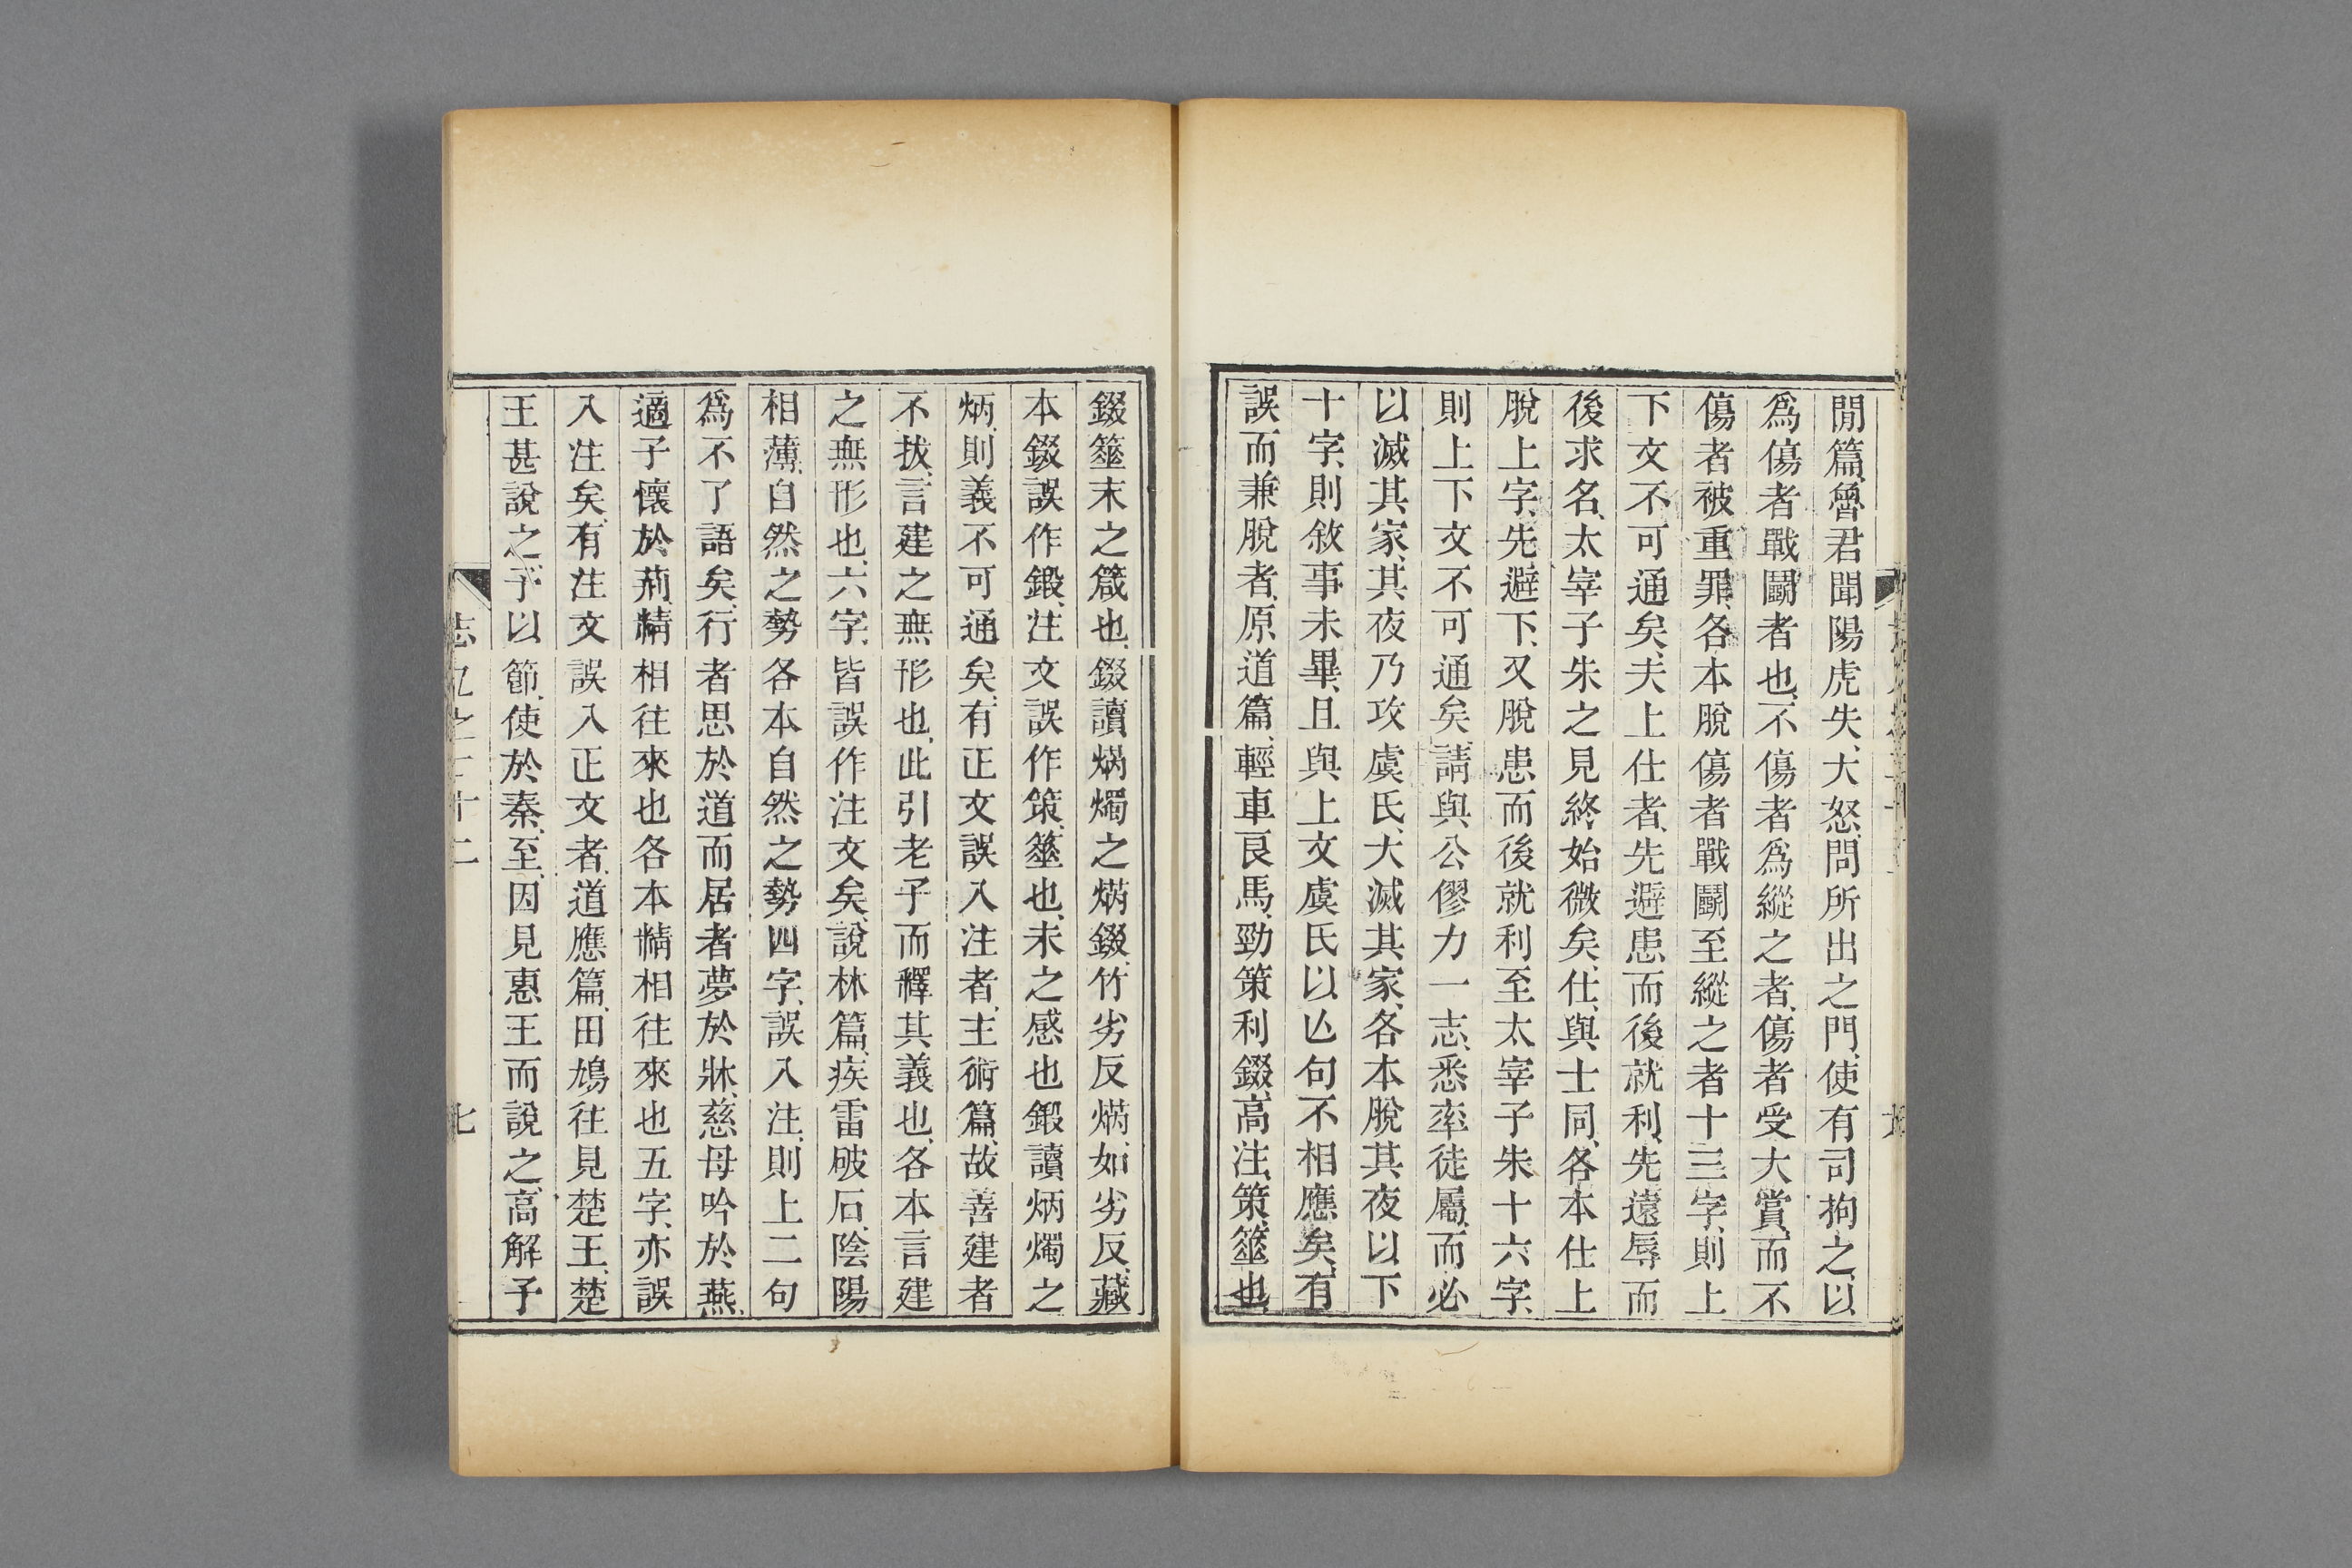 閒篇、魯君聞陽虎失、大怒、問所出之門、使有司拘之、以
爲傷者戰鬬者也、不傷者爲縱之者、傷者受大賞、而不
傷者被重罪、各本脫傷者戰鬬至縱之者十三字、則上
下文不可通矣、夫上仕者、先避患而後就利、先遠辱而
後求名、太宰子朱之見終始微矣、仕、與士同、各本仕上
脫上字、先避下、又脫患而後就利至太宰子朱十六字、
則上下文不可通矣、請與公僇力一志、悉率徒屬、而必
以滅其家、其夜乃攻虞氏、大滅其家、各本脫其夜以下
十字、則敘事未畢、且與上文虞氏以亾句不相應矣、有
誤而兼脫者、原道篇、輕車良馬、勁策利錣、高注、策、箠也、
錣箠末之箴也、錣讀焫燭之焫、錣、竹劣反、焫、如劣反、藏
本錣誤作鍛、注文誤作策、箠也、未之感也、鍛讀炳燭之
炳、則義不可通矣、有正文誤入注者、主術篇、故善建者
不拔、言建之無形也、此引老子而釋其義也、各本言建
之無形也、六字、皆誤作注文矣、說林篇、疾雷破石、陰陽
相薄、自然之勢、各本自然之勢四字、誤入注、則上二句
爲不了語矣、行者思於道、而居者夢於牀、慈母吟於燕、
適子懷於荊、精相往來也、各本精相往來也五字、亦誤
入注矣、有注文誤入正文者、道應篇、田鳩往見楚王、楚
王甚說之、予以節、使於秦、至、因見惠王而說之、高解予
志九之二十二 七